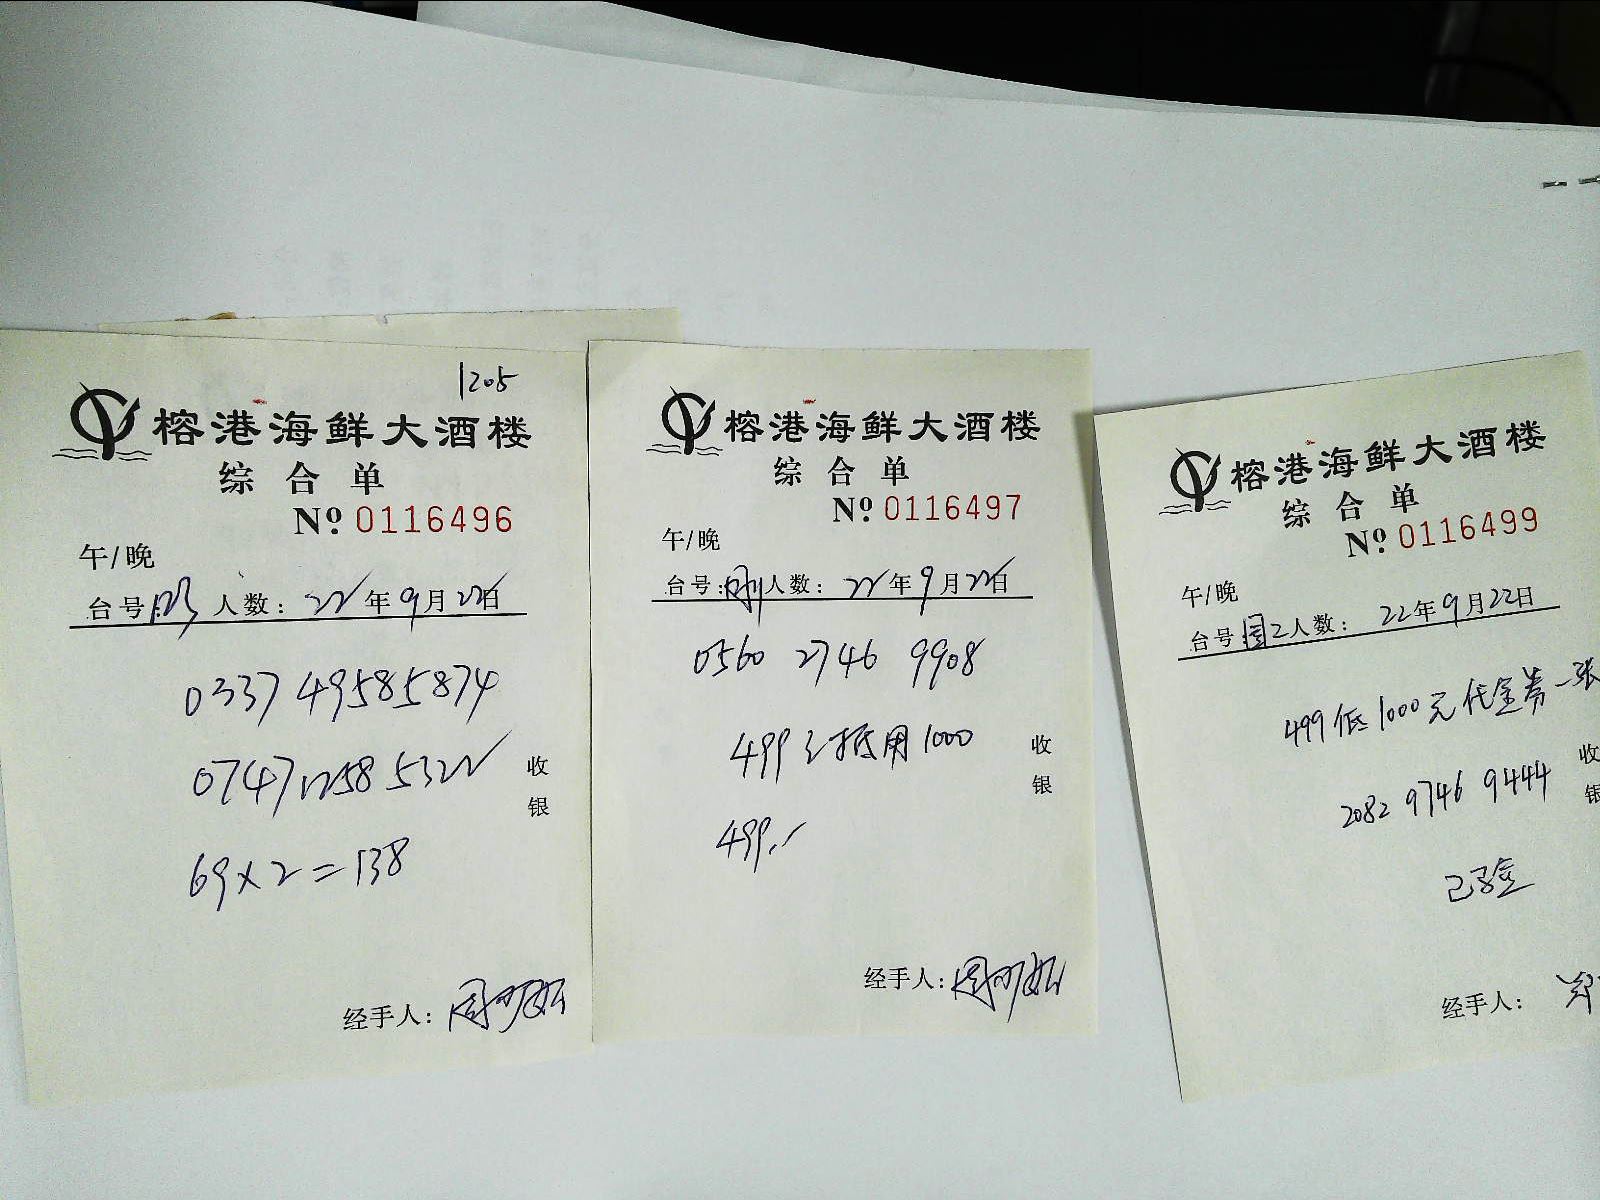 1205
榕港海鲜大酒楼
综合单
Nº 0116496
午/晚
台号 人数: 22年9月22日
0337 49585874
0747 1258 5322
69×2=138
收
银
经手人:
榕港海鲜大酒楼
综合单
Nº 0116497
午/晚
台号: 人数: 22年9月22日
0560 2746 9908
499 抵用1000
499.
收
银
经手人:
榕港海鲜大酒楼
综合单
Nº 0116499
午/晚
台号 2 人数: 22年9月22日
499低1000元代金券一张
2082 9746 9444
已验
收
银
经手人: